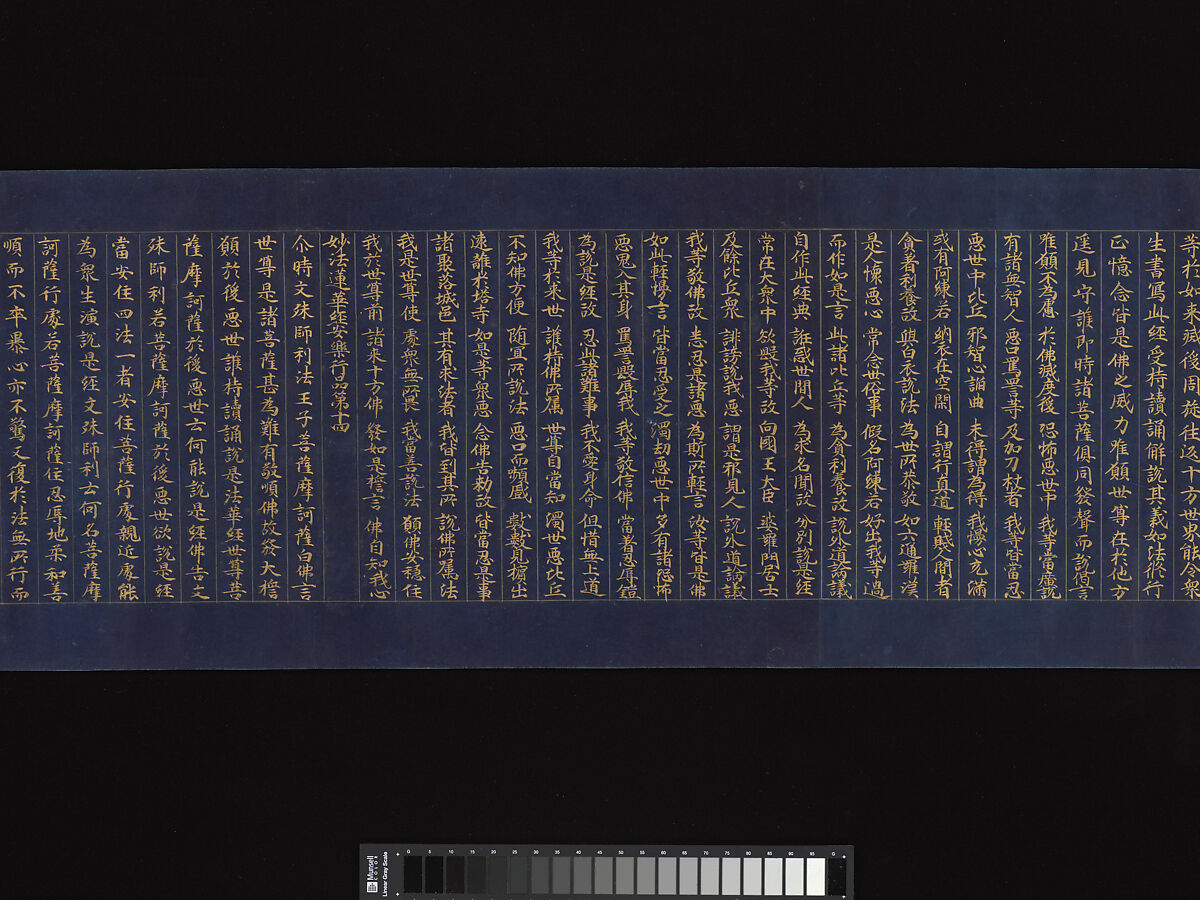 等於如來滅後周旋往返十方世界能令衆
生書寫此經受持讀誦解說其義如法修行
正憶念皆是佛之威力唯願世尊在於他方
遥見守護即時諸菩薩俱同發聲而說偈言
唯願不為慮 於佛滅度後 恐怖惡世中 我等當廣說
有諸無智人 惡口罵詈等 及加刀杖者 我等皆當忍
惡世中比丘 邪智心諂曲 未得謂為得 我慢心充滿
或有阿練若 納衣在空閑 自謂行真道 輕賤人間者
貪著利養故 與白衣說法 為世所恭敬 如六通羅漢
是人懷惡心 常念世俗事 假名阿練若 好出我等過
而作如是言 此諸比丘等 為貪利養故 說外道論議
自作此經典 誑惑世間人 為求名聞故 分別說是經
常在大衆中 欲毀我等故 向國王大臣 婆羅門居士
及餘比丘衆 誹謗說我惡 謂是邪見人 說外道論議
我等敬佛故 悉忍是諸惡 為斯所輕言 汝等皆是佛
如此輕慢言 皆當忍受之 濁劫惡世中 多有諸恐怖
惡鬼入其身 罵詈毀辱我 我等敬信佛 當著忍辱鎧
為說是經故 忍此諸難事 我不愛身命 但惜無上道
我等於來世 護持佛所属 世尊自當知 濁世惡比丘
不知佛方便 随宜所說法 惡口而頻蹙 數數見擯出
遠離於塔寺 如是等衆惡 念佛告勅故 皆當忍是事
諸聚落城邑 其有求法者 我皆到其所 說佛所属法
我是世尊使 處衆無所畏 我當善說法 願佛安穏住
我於世尊前 諸来十方佛 發如是誓言 佛自知我心
妙法蓮華經安樂行品第十四
尒時文殊師利法王子菩薩摩訶薩白佛言
世尊是諸菩薩甚為難有敬順佛故發大誓
願於後惡世護持讀誦說是法華經世尊菩
薩摩訶薩於後惡世云何能說是經佛告文
殊師利若菩薩摩訶薩於後惡世欲說是經
當安住四法一者安住菩薩行處親近處能
為衆生演說是經文殊師利云何名菩薩摩
訶薩行處若菩薩摩訶薩住忍辱地柔和善
順而不卒暴心亦不驚又復於法無所行而
Munsell COLOR
Linear Gray Scale
0 5 10 15 20 25 30 35 40 45 50 55 60 65 70 75 80 85 90 95 0